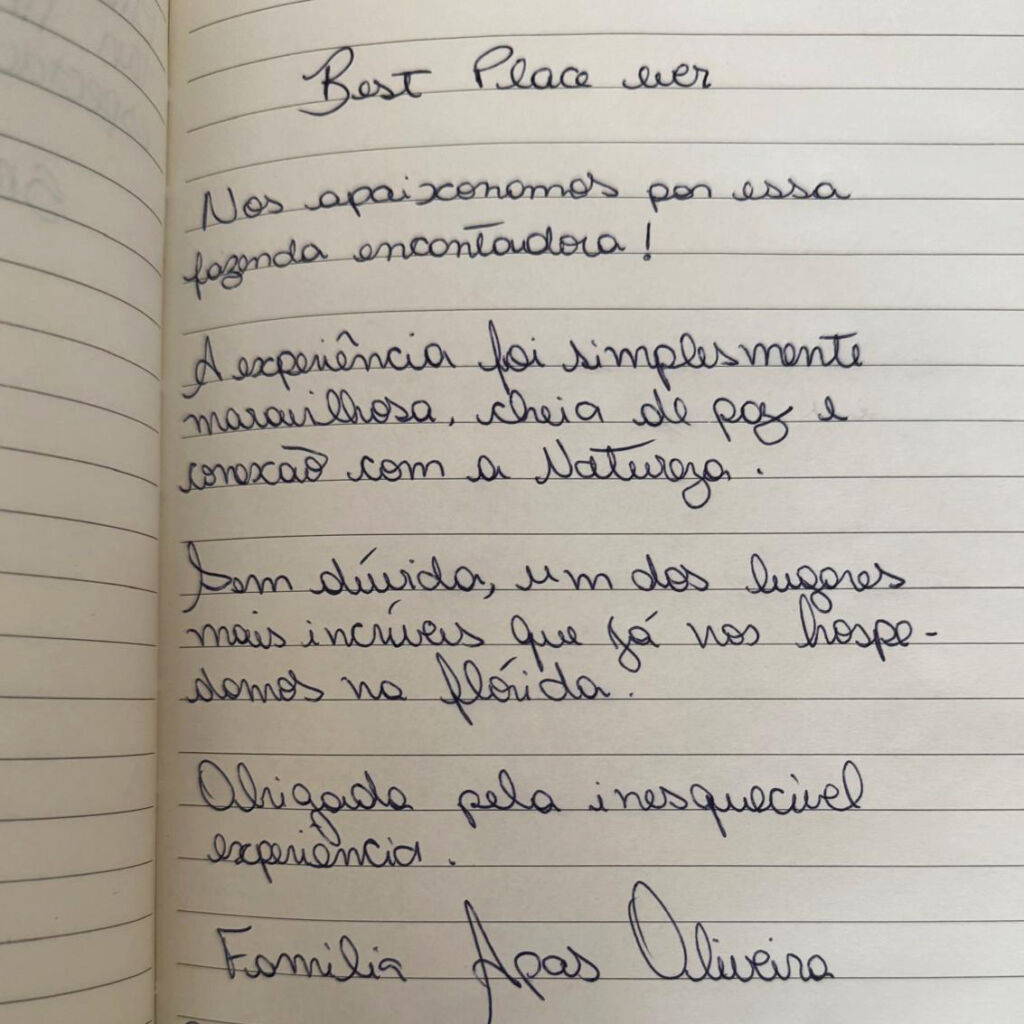 Best Place ever
Nos apaixonamos por essa
fazenda encantadora!
A experiência foi simplesmente
maravilhosa, cheia de paz e
conexão com a Natureza.
Sem dúvida, um dos lugares
mais incríveis que já nos hospe-
damos na flórida.
Obrigada pela inesquecível
experiência.
Familia Apas Oliveira